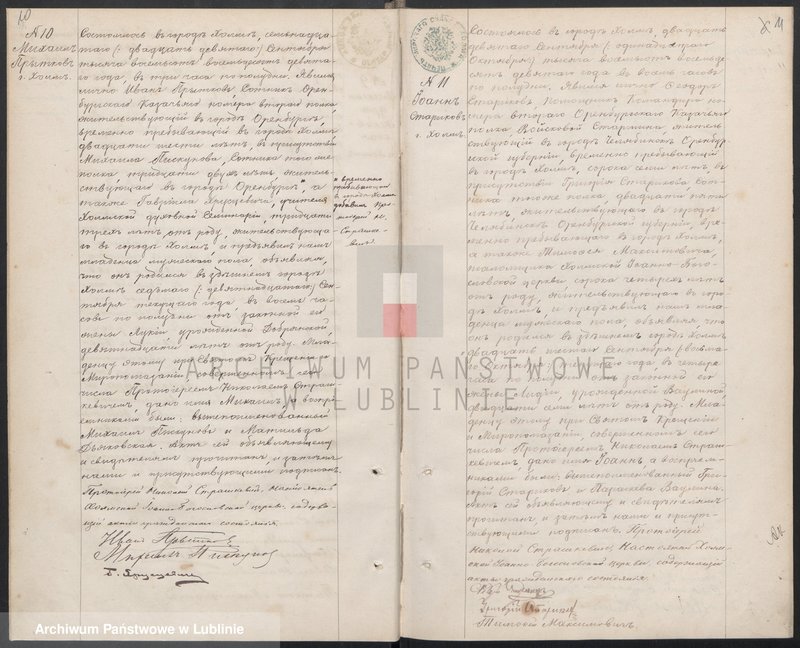 10
№ 10
Михаилъ
Прытковъ
г. Холмъ.
Состоялось въ городѣ Холмѣ, семнадца-
таго (: двадцать девятаго) Сентября
тысяча восемьсотъ восемьдесятъ девята-
го года, въ три часа по полудни. Явился
лично Иванъ Прытковъ Сотникъ Орен-
бургскаго Казачьяго номера втораго полка
жительствующій въ городѣ Оренбургѣ,
временно пребывающій въ городѣ Холмѣ
двадцати шести лѣтъ, въ присутствіи
Михаила Пискунова, Сотника того же
полка, тридцати двухъ лѣтъ, житель-
ствующаго въ городѣ Оренбургѣ, а
также Гавріила Хрусцевича, учителя
Холмской духовной Семинаріи, тридцати
трехъ лѣтъ отъ роду, жительствующа-
го въ городѣ Холмѣ и предъявилъ намъ
младенца мужескаго пола, объявляя,
что онъ родился въ здѣшнемъ городѣ
Холмѣ седьмаго (: девятнадцатаго) Сен-
тября текущаго года въ восемь ча-
совъ по полудни отъ законной его
жены урожденной
девятнадцати лѣтъ отъ роду. Мла-
денцу этому при Святомъ Крещеніи и
Миропомазаніи, совершенномъ сего
числа Протоіереемъ Николаемъ Страш-
кевичемъ, дано имя Михаилъ, а воспрі-
емниками были: вышепоименованный
Михаилъ Пискуновъ и Матильда
Актъ сей объявляющему
и свидѣтелямъ прочитанъ и затѣмъ
нами и присутствующими подписанъ.
Протоіерей Николай Страшкевичъ, Настоятель
Холмской Іоанно-Богословской церкви, содержа-
щій акты гражданскаго состоянія.
Иванъ Прытковъ
Михаилъ Пискуновъ
Г. Хрусцевичъ
и временно
пребывающаго
въ городѣ Холмѣ
Страшке-
вичъ
11
№ 11
Іоаннъ
Стариковъ
г. Холмъ.
Состоялось въ городѣ Холмѣ, двадцать
девятаго Сентября (: одинадцатаго
Октября) тысяча восемьсотъ восемьде-
сятъ девятаго года въ восемь часовъ
по полудни. Явился лично Ѳеодоръ
Стариковъ, Помощникъ Командира но-
мера втораго Оренбургскаго Казачьяго
полка, Войсковой Старшина, житель-
ствующій въ городѣ Челябинскѣ Оренбург-
ской губерніи, временно пребывающій
въ городѣ Холмѣ, сорока семи лѣтъ, въ
присутствіи Григорія Старикова Сот-
ника того же полка, двадцати пяти
лѣтъ, жительствующаго въ городѣ
Челябинскѣ Оренбургской губерніи, вре-
менно пребывающаго въ городѣ Холмѣ,
а также Тимоѳея Максимовича,
псаломщика Холмской Іоанно-Бого-
словской церкви, сорока четырехъ лѣтъ
отъ роду, жительствующаго въ горо-
дѣ Холмѣ, и предъявилъ намъ мла-
денца мужескаго пола, объявляя, что
онъ родился въ здѣшнемъ городѣ Холмѣ
двадцать шестаго Сентября (: восьма-
го Октября) текущаго года въ четыре
часа по полудни отъ законной его
жены Лидіи, урожденной
двадцати семи лѣтъ отъ роду. Мла-
денцу этому при Святомъ Крещеніи
и Миропомазаніи, совершенномъ сего
числа Протоіереемъ Николаемъ Страш-
кевичемъ, дано имя Іоаннъ, а воспріем-
никами были: вышепоименованный Гри-
горій Стариковъ и Параскева
Актъ сей объявляющему и свидѣтелямъ
прочитанъ и затѣмъ нами и присут-
ствующими подписанъ. Протоіерей
Николай Страшкевичъ, Настоятель Холм-
ской Іоанно-Богословской церкви, содержащій
акты гражданскаго состоянія.
Григорій Стариковъ
Тимоѳей Максимовичъ.
ARCHIWUM PAŃSTWOWE
W LUBLINIE
Archiwum Państwowe w Lublinie